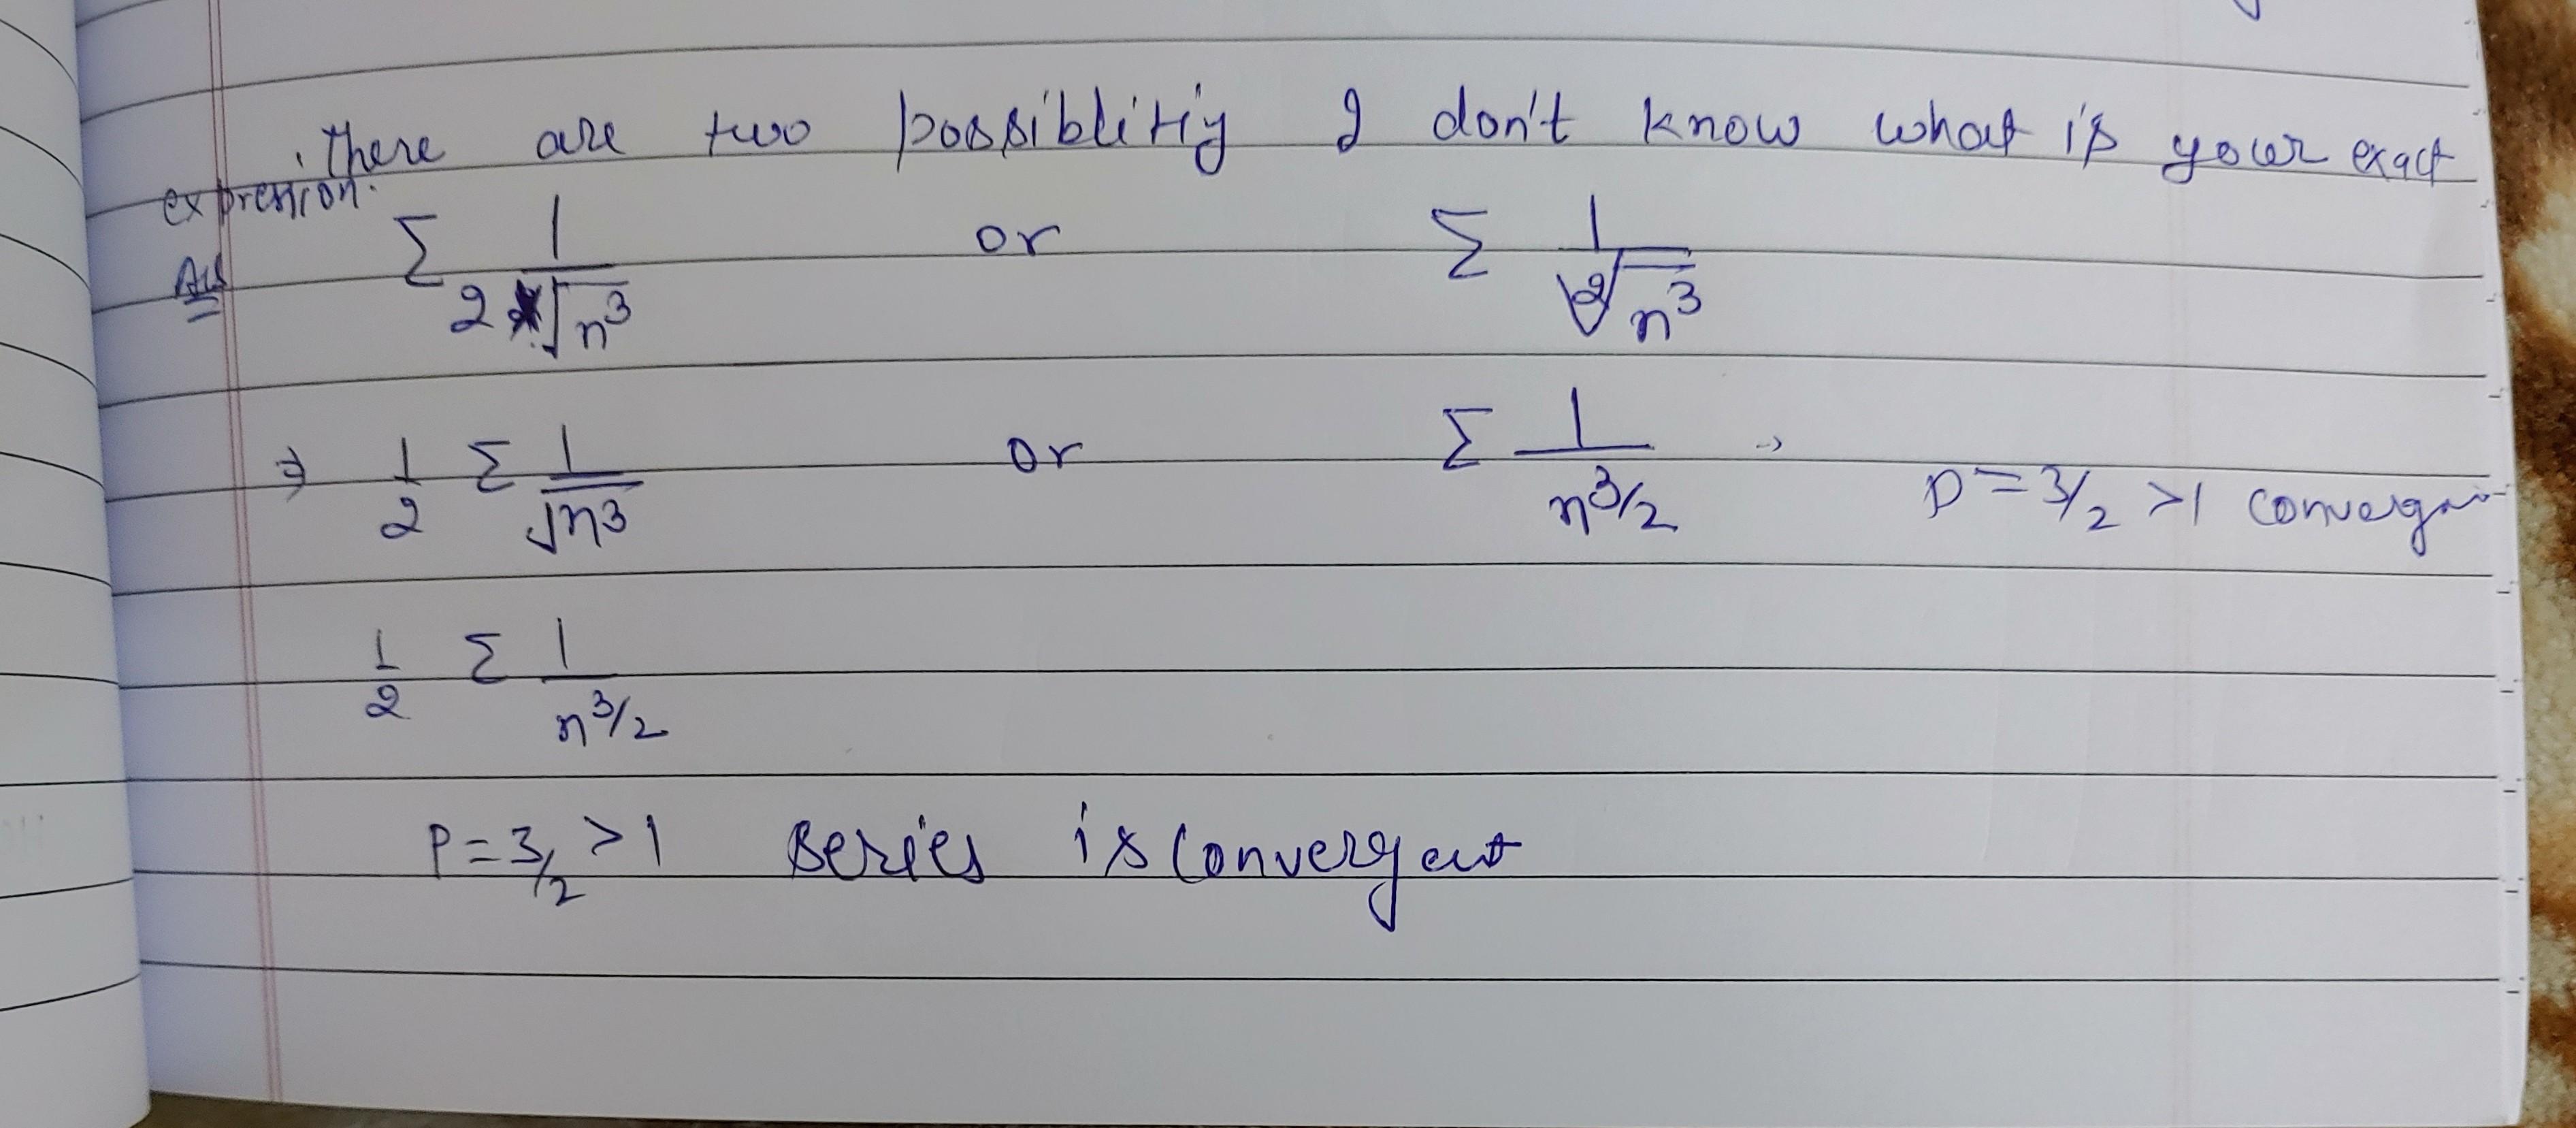 there are two possiblitiy I don't know what is your exact
expression.
Ans Σ 1/(2√n³) or Σ 1/²√n³
⇒ 1/2 Σ 1/√n³ or Σ 1/n^3/2 → P = 3/2 > 1
1/2 Σ 1/n^3/2
P = 3/2 > 1 series is convergent